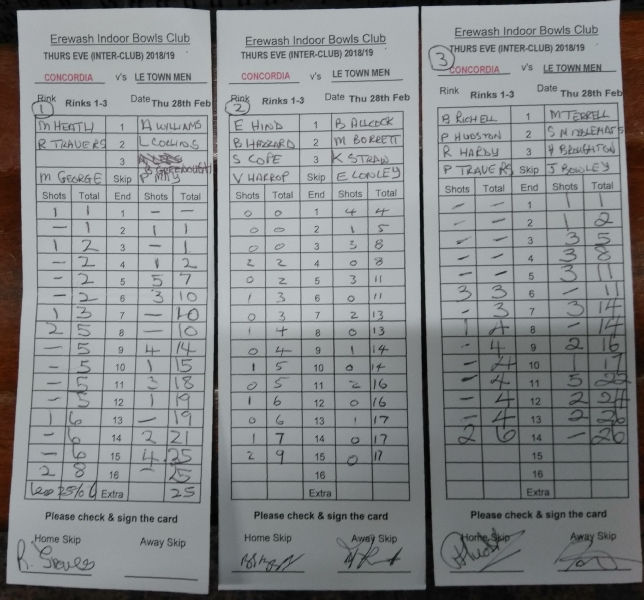 Erewash Indoor Bowls Club
THURS EVE (INTER-CLUB) 2018/19
CONCORDIA v's LE TOWN MEN
Rink 1 Rinks 1-3 Date Thu 28th Feb
M HEATH 1 A WILLIAMS
R TRAVERS 2 L COLLINS
3 B GREENOUGH
M GEORGE Skip P
Shots Total End Shots Total
1 1 1 - -
- 1 2 1 1
1 2 3 - 1
- 2 4 1 2
- 2 5 5 7
- 2 6 3 10
1 3 7 - 10
2 5 8 - 10
- 5 9 4 14
- 5 10 1 15
- 5 11 3 18
- 5 12 1 19
1 6 13 - 19
- 6 14 2 21
- 6 15 4 25
2 8 16 - 25
Less 25% 6 Extra 25
Please check & sign the card
Home Skip Away Skip
Erewash Indoor Bowls Club
THURS EVE (INTER-CLUB) 2018/19
CONCORDIA v's LE TOWN MEN
Rink 2 Rinks 1-3 Date Thu 28th Feb
E HIND 1 B ALLCOCK
B HAZZARD 2 M BORRETT
S COPE 3 K STRAW
V HARROP Skip E LOWLEY
Shots Total End Shots Total
0 0 1 4 4
0 0 2 1 5
0 0 3 3 8
2 2 4 0 8
0 2 5 3 11
1 3 6 0 11
0 3 7 2 13
1 4 8 0 13
0 4 9 1 14
1 5 10 0 14
0 5 11 2 16
1 6 12 0 16
0 6 13 1 17
1 7 14 0 17
2 9 15 0 17
16
Extra
Please check & sign the card
Home Skip Away Skip
Erewash Indoor Bowls Club
THURS EVE (INTER-CLUB) 2018/19
3 CONCORDIA v's LE TOWN MEN
Rink Rinks 1-3 Date Thu 28th Feb
B RICHELL 1 M TERRELL
P HUDSTON 2 S
R HARDY 3 BROUGHTON
P TRAVERS Skip J BOWLEY
Shots Total End Shots Total
- - 1 1 1
- - 2 1 2
- - 3 3 5
- - 4 3 8
- - 5 3 11
3 3 6 - 11
- 3 7 3 14
1 4 8 - 14
- 4 9 2 16
- 4 10 17
- 4 11 5 22
- 4 12 2 24
- 4 13 2 26
2 6 14 - 26
15
16
Extra
Please check & sign the card
Home Skip Away Skip